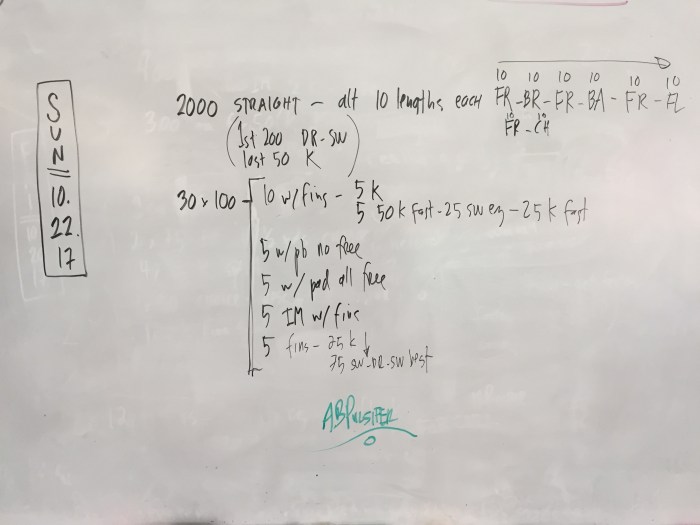 SUN
10.
22.
17
10 10 10 10 10 10
2000 STRAIGHT - alt 10 lengths each FR-BR-FR-BA-FR-FL
10 10
FR-CH
(1st 200 DR-SW
last 50 K)
30 x 100 - 10 w/fins - 5 K
5 50 k fast - 25 sw ez - 25 k fast
5 w/pb no free
5 w/pad all free
5 IM w/fins
5 fins - 25 k ↓
75 sw-DR-sw best